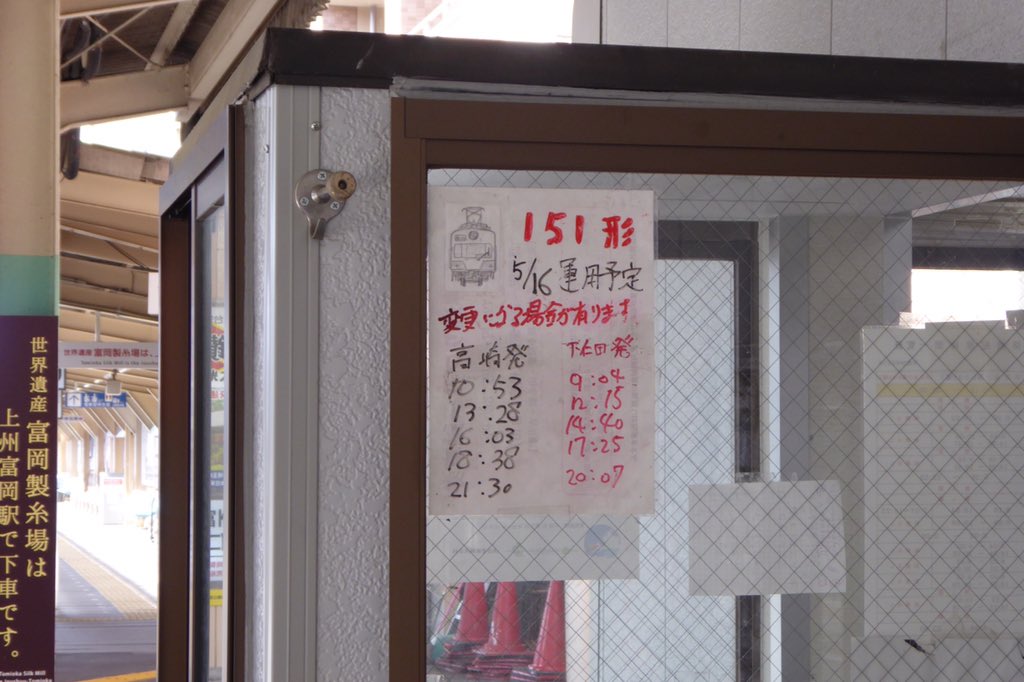 151形
5/16 運用予定
変更になる場合が有ります
高崎発
10:53
13:28
16:03
18:38
21:30
下仁田発
9:04
12:15
14:40
17:25
20:07
世界遺産 富岡製糸場は
上州富岡駅で下車です。
Tomioka Silk Mill
世界遺産 富岡製糸場は、